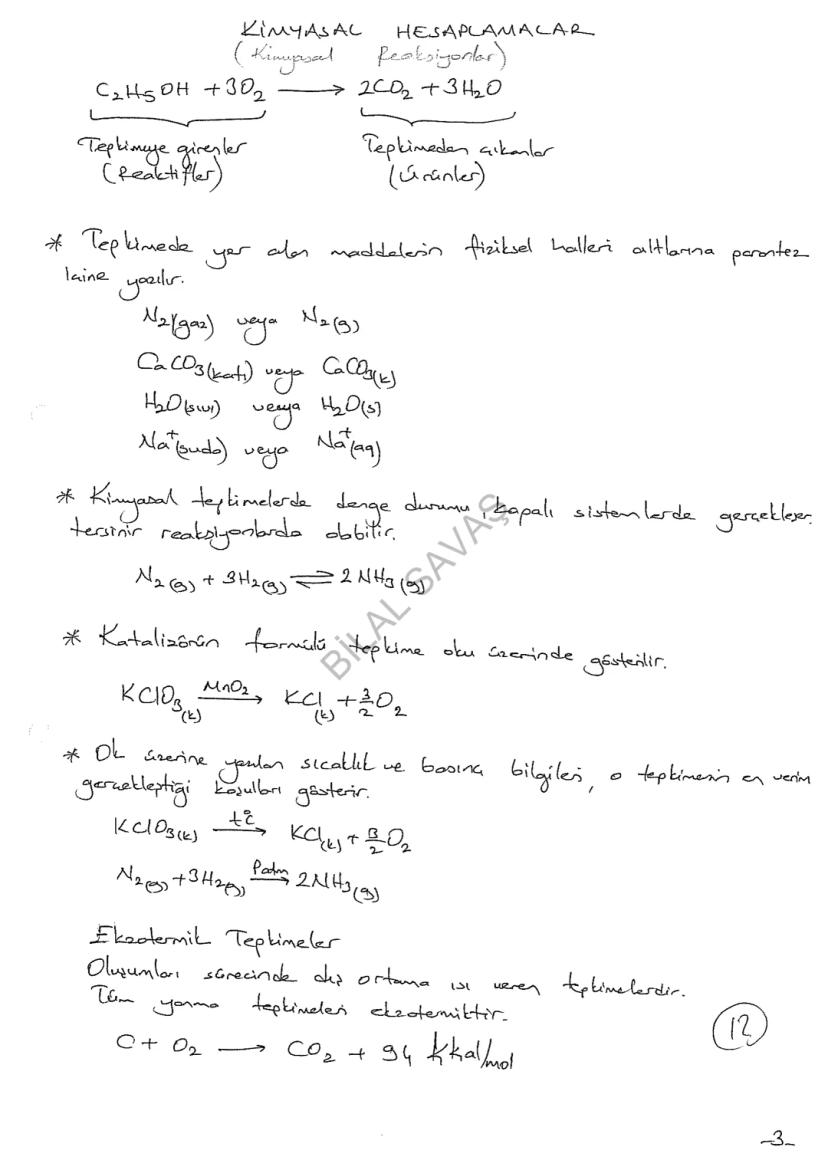 KİMYASAL HESAPLAMALAR
(Kimyasal Reaksiyonlar)
C₂H₅OH + 3O₂ ⟶ 2CO₂ + 3H₂O
Tepkimeye girenler Tepkimeden çıkanlar
(Reaktifler) (Ürünler)
* Tepkimede yer alan maddelerin fiziksel halleri altlarına parantez
içine yazılır.
N₂(gaz) veya N₂(g)
CaCO₃(katı) veya CaCO₃(k)
H₂O(sıvı) veya H₂O(s)
Na⁺(suda) veya Na⁺(aq)
* Kimyasal tepkimelerde denge durumu, kapalı sistemlerde gerçekleşen
tersinir reaksiyonlarda olabilir.
N₂(g) + 3H₂(g) ⇌ 2NH₃(g)
BİLAL SAVAŞ
* Katalizörün formülü tepkime oku üzerinde gösterilir.
KClO₃(k) ⟶ MnO₂ KCl(k) + 3/2 O₂
* Ok üzerine yazılan sıcaklık ve basınç bilgileri, o tepkimenin en verim
gerçekleştiği koşulları gösterir.
KClO₃(k) ⟶ t°C KCl(k) + 3/2 O₂
N₂(g) + 3H₂(g) ⟶ Patm 2NH₃(g)
Ekzotermik Tepkimeler
Oluşumları sürecinde dış ortama ısı veren tepkimelerdir.
Tüm yanma tepkimeleri ekzotermiktir.
C + O₂ ⟶ CO₂ + 94 kkal/mol
12
-3-